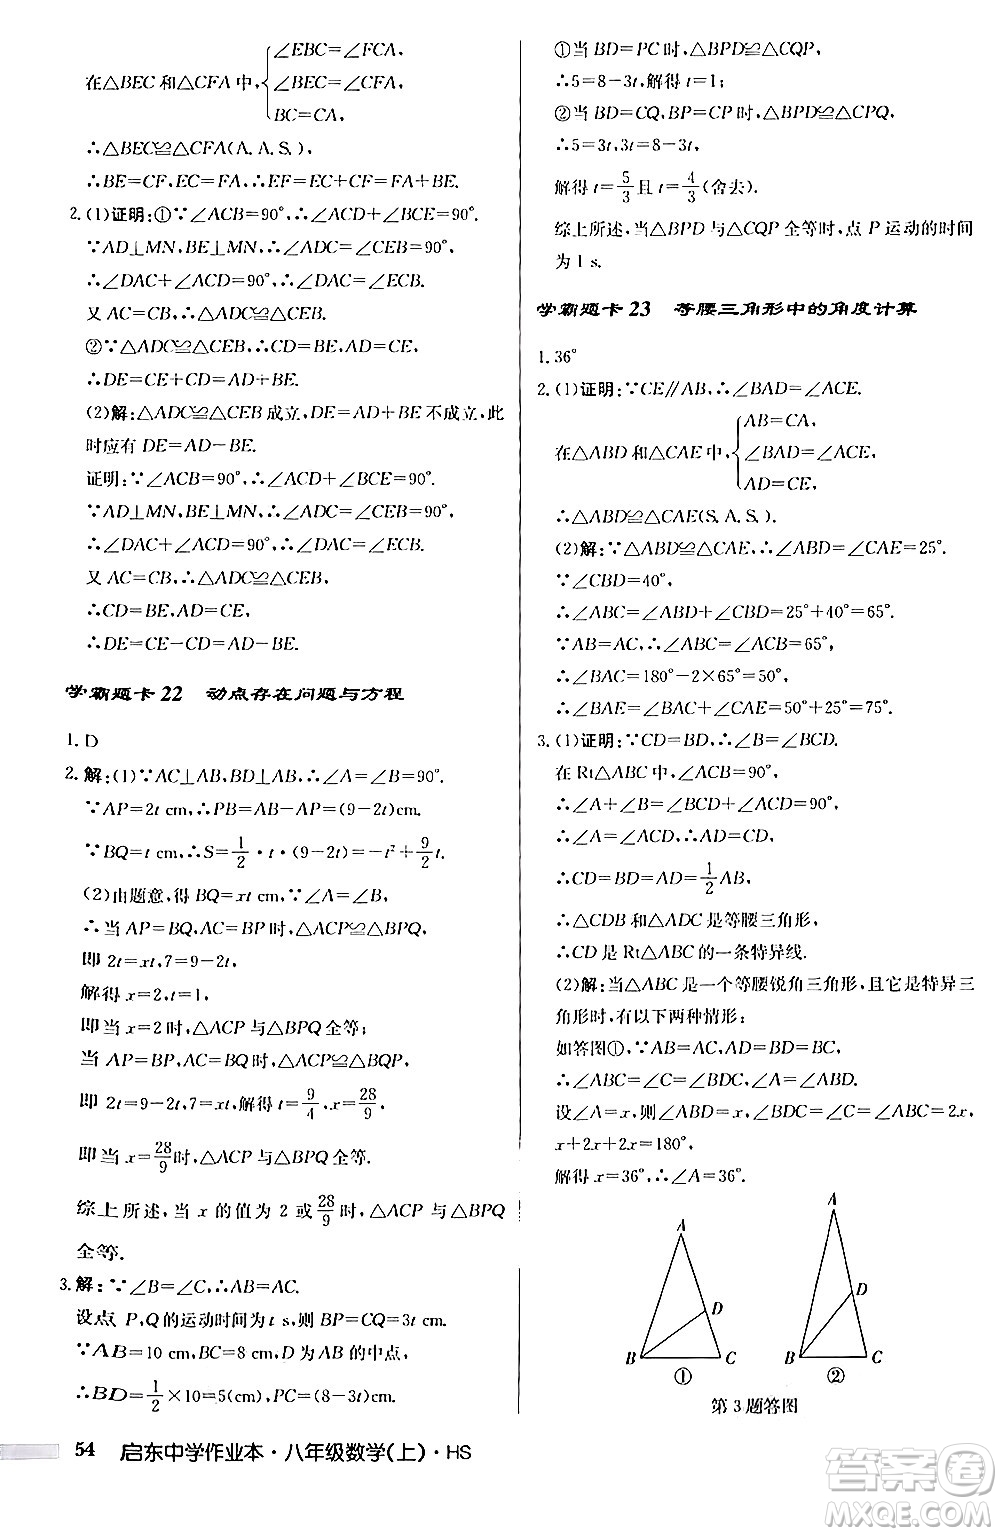 ∠EBC=∠FCA,
在△BEC和△CFA中,{∠BEC=∠CFA,
BC=CA,
∴△BEC≌△CFA(A.A.S.).
∴BE=CF,EC=FA,∴EF=EC+CF=FA+BE.
2.(1)证明:①∵∠ACB=90°,∴∠ACD+∠BCE=90°.
∵AD⊥MN,BE⊥MN,∴∠ADC=∠CEB=90°,
∴∠DAC+∠ACD=90°,∴∠DAC=∠BCE.
又AC=CB,∴△ADC≌△CEB.
②∵△ADC≌△CEB,∴CE=AD,CD=BE,
∴DE=CE+CD=AD+BE.
(2)解:△ADC≌△CEB成立,DE=AD+BE不成立,此
时应有DE=AD-BE.
证明:∵∠ACB=90°,∴∠ACD+∠BCE=90°.
∵AD⊥MN,BE⊥MN,∴∠ADC=∠CEB=90°,
∴∠DAC+∠ACD=90°,∴∠DAC=∠BCE.
又AC=CB,∴△ADC≌△CEB,
∴CD=BE,AD=CE,
∴DE=CE-CD=AD-BE.
学霸题卡22 动点存在问题与方程
1.D
2.解:(1)∵AC⊥AB,BD⊥AB,∴∠A=∠B=90°.
∵AP=2t cm,∴PB=AB-AP=(9-2t)cm.
∵BQ=t cm,∴S=1/2·t·(9-2t)=-t²+9/2 t.
(2)由题意,得BQ=xt,∵∠A=∠B,
∴当AP=BQ,AC=BP时,△ACP≌△BPQ,
即2t=xt,7=9-2t,
解得x=2,t=1,
即当x=2时,△ACP与△BPQ全等;
当AP=BP,AC=BQ时,△ACP≌△BQP,
即2t=9-2t,7=xt,解得t=9/4,x=28/9,
即当x=28/9时,△ACP与△BPQ全等.
综上所述,当x的值为2或28/9时,△ACP与△BPQ
全等.
3.解:∵∠B=∠C,∴AB=AC.
设点P,Q的运动时间为t s,则BP=CQ=3t cm.
∵AB=10 cm,BC=8 cm,D为AB的中点,
∴BD=1/2×10=5(cm),PC=(8-3t)cm.
①当BD=PC时,△BPD≌△CQP,
∴5=8-3t,解得t=1;
②当BD=CQ,BP=CP时,△BPD≌△CPQ,
∴5=3t,3t=8-3t,
解得t=5/3且t=4/3(舍去).
综上所述,当△BPD与△CQP全等时,点P运动的时间
为1 s.
学霸题卡23 等腰三角形中的角度计算
1.36°
2.(1)证明:∵CE∥AB,∴∠BAD=∠ACE.
AB=CA,
在△ABD和△CAE中,{∠BAD=∠ACE,
AD=CE,
∴△ABD≌△CAE(S.A.S.).
(2)解:∵△ABD≌△CAE,∴∠ABD=∠CAE=25°.
∵∠CBD=40°,
∴∠ABC=∠ABD+∠CBD=25°+40°=65°.
∵AB=AC,∴∠ABC=∠ACB=65°,
∴∠BAC=180°-∠ABC-∠ACB=180°-2×65°=50°,
∴∠BAE=∠BAC+∠CAE=50°+25°=75°.
3.(1)证明:∵CD=BD,∴∠B=∠BCD.
在Rt△ABC中,∵∠ACB=90°,
∴∠A+∠B=∠BCD+∠ACD=90°,
∴∠A=∠ACD,∴AD=CD,
∴CD=BD=AD=1/2 AB,
∴△CDB和△ADC是等腰三角形,
∴CD是Rt△ABC的一条特异线.
(2)解:当△ABC是一个等腰锐角三角形,且它是特异三
角形时,有以下两种情形:
如答图①,∵AB=AC,AD=BD=BC,
∴∠A=∠ABD,∠C=∠ABC=∠BDC.
设∠A=x,则∠ABD=x,∠BDC=∠C=∠ABC=2x,
x+2x+2x=180°,
解得x=36°,∴∠A=36°.
A
D
B
C
①
A
D
B
C
②
第3题答图
54 启东中学作业本·八年级数学(上)·HS
答案圈
MXQE.COM